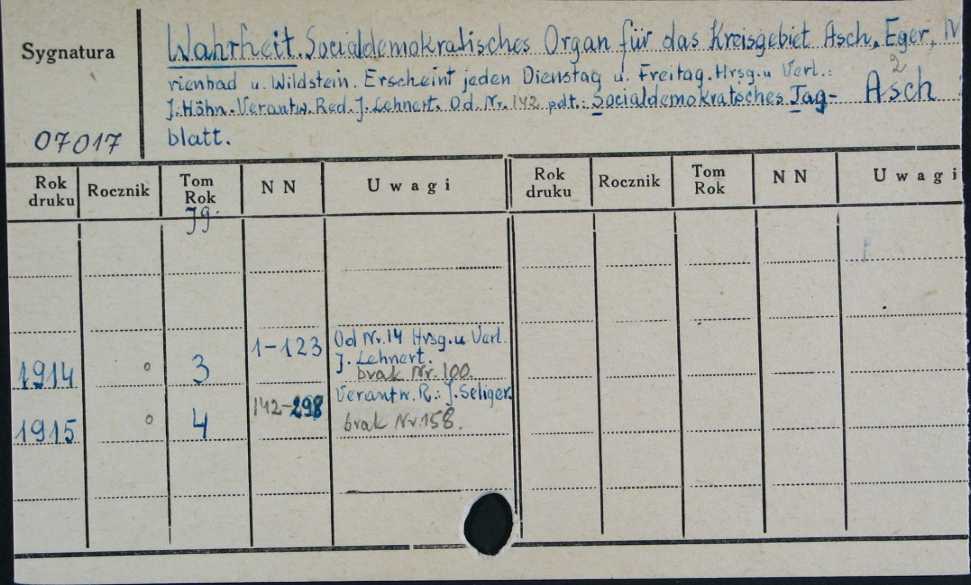 Sygnatura
07017
Wahrheit. Socialdemokratisches Organ für das Kreisgebiet Asch, Eger,
rienbad u. Wildstein. Erscheint jeden Dienstag u. Freitag. Hrsg. u Verl.:
J. Höhn. Verantw. Red. J. Lehnert. Od. Nr. 142 pdt.: Socialdemokratsches Tag-
blatt.
2
Asch
Rok druku Rocznik Tom Rok NN Uwagi Rok druku Rocznik Tom Rok NN Uwagi
Jg.
1914 ° 3 1-123 Od Nr. 14 Hrsg. u Verl.
J. Lehnert.
brak Nr. 100.
1915 ° 4 142-298 Verantw. R.: J. Seliger.
brak Nr. 158.